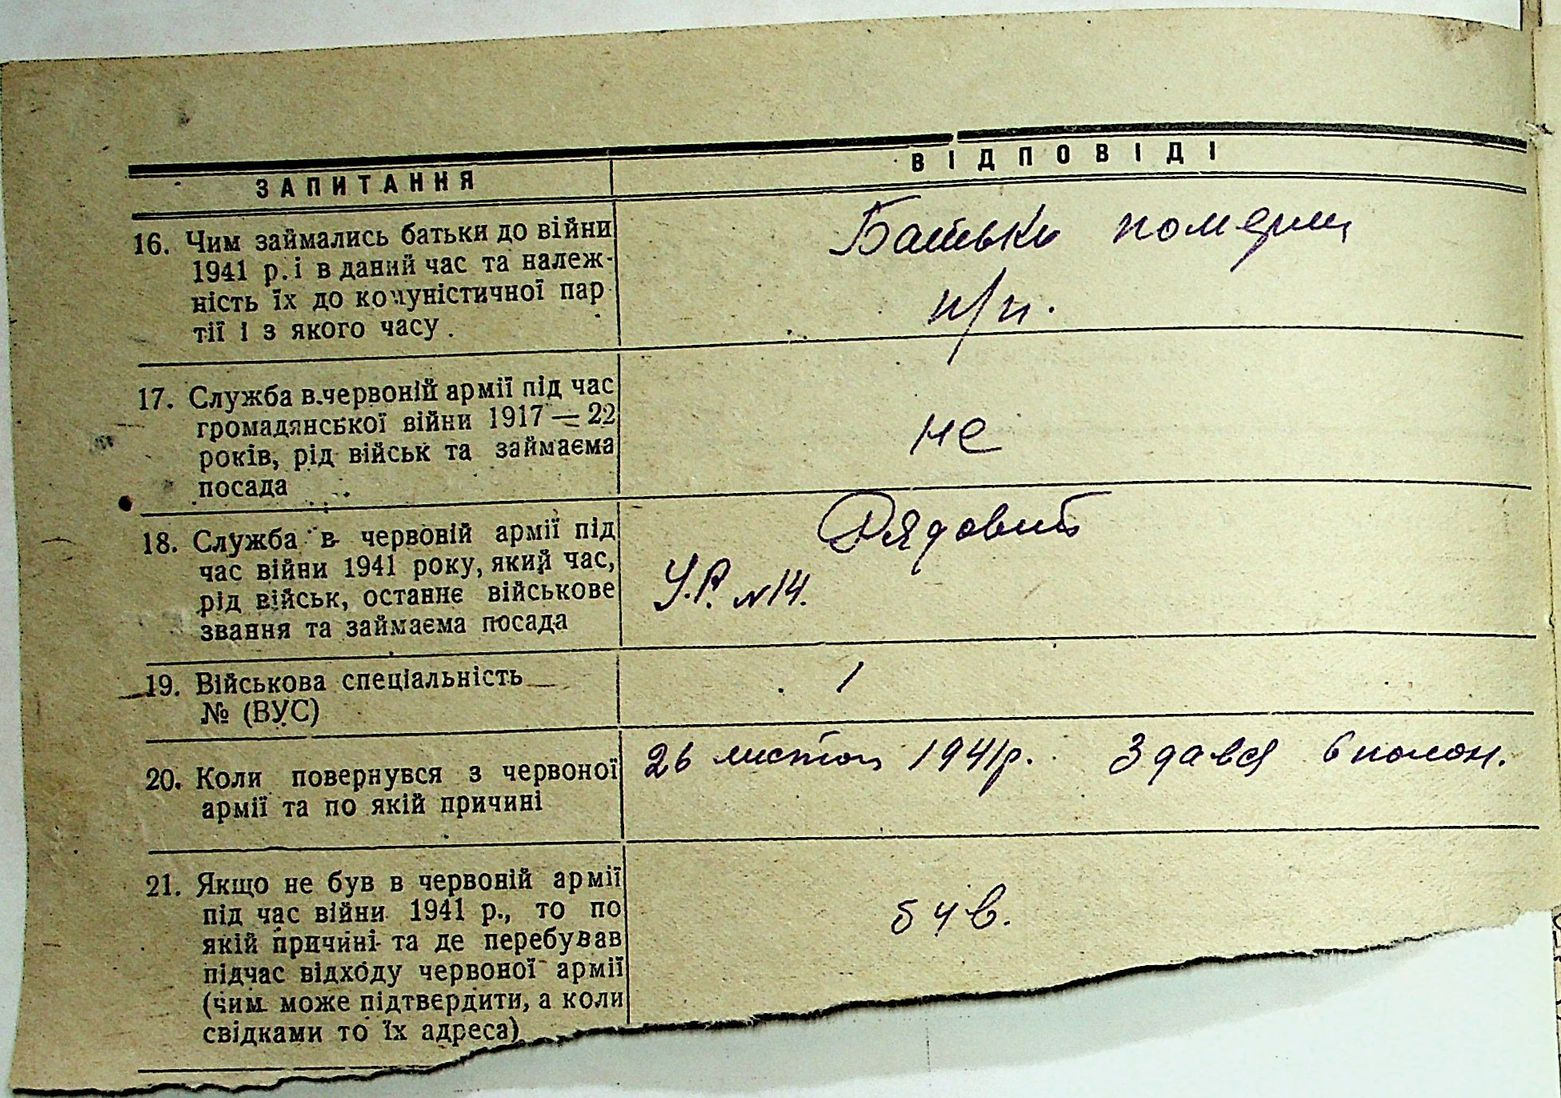 ЗАПИТАННЯ ВІДПОВІДІ
16. Чим займались батьки до війни
1941 р. і в даний час та належ-
ність їх до комуністичної пар
тії і з якого часу.
Батьки померли
н/п.
17. Служба в червоній армії під час
громадянської війни 1917 — 22
років, рід військ та займаєма
посада
не
18. Служба в червовій армії під
час війни 1941 року, який час,
рід військ, останнє військове
звання та займаєма посада
Рядовий
У.Р. №14.
19. Військова спеціальність
№ (ВУС)
/
20. Коли повернувся з червоної
армії та по якій причині
26 листоп 1941р. Здався в полон.
21. Якщо не був в червоній армії
під час війни 1941 р., то по
якій причині та де перебував
підчас відходу червоної армії
(чим може підтвердити, а коли
свідками то їх адреса)
був.